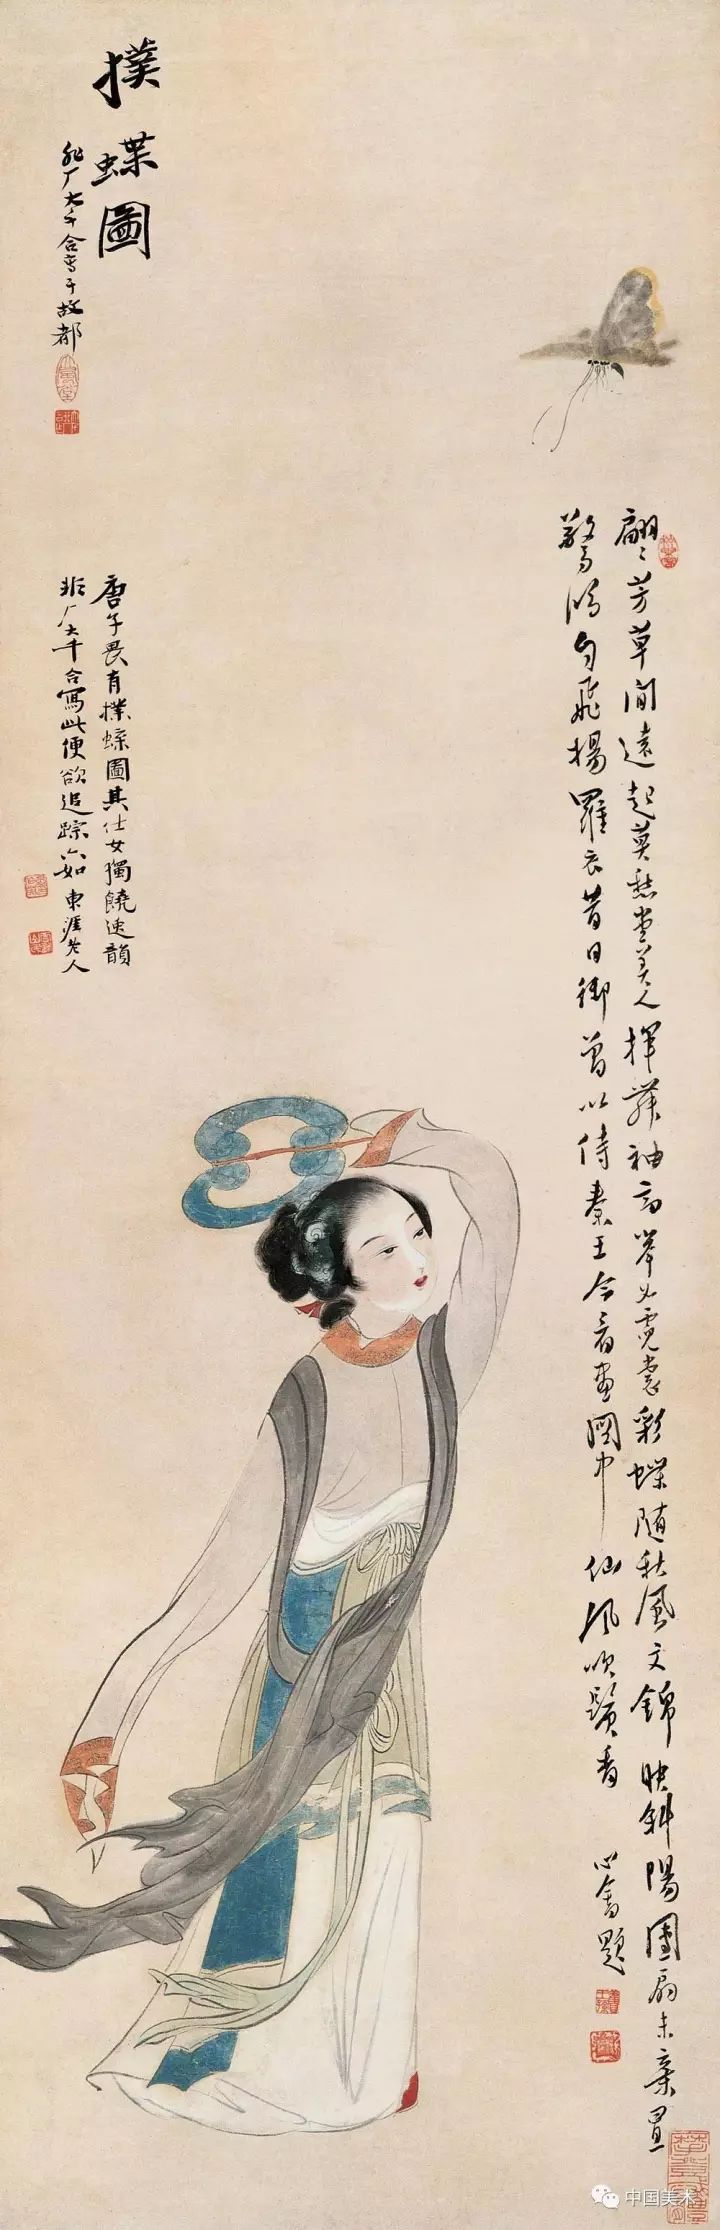 翩〻芳草間遠起莫愁堂美人揮舞袖高舉如霓裳彩蝶隨秋風文錦映斜陽團扇未棄置
驚鴻自飛揚羅衣昔日御曾以侍秦王今看畫圖中仙風吹鬢香 心畬題
撲蝶圖
非厂大千合寫于故都
唐子畏有撲蝶圖其仕女獨饒逸韻
非厂大千合寫此便欲追踪六如 東涯老人
中国美术